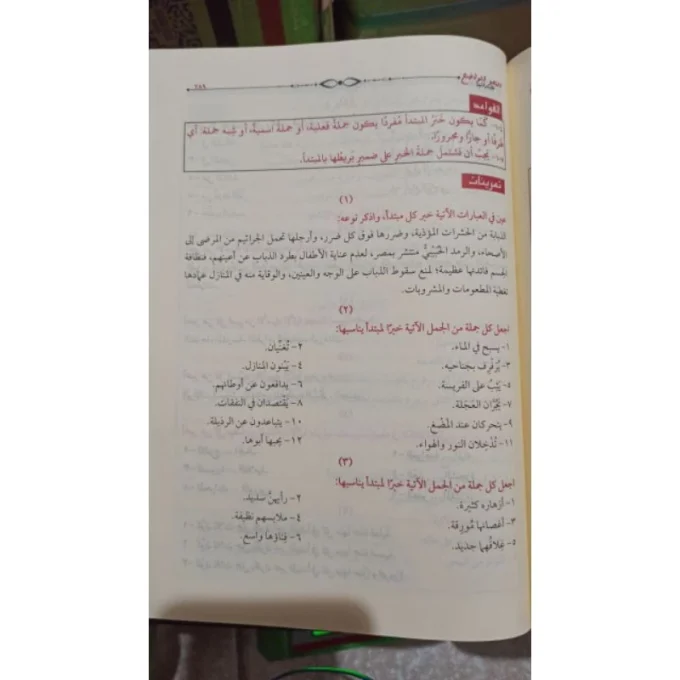 النحو الواضح ٢٨٩
القواعد
كَمَا يكون خَبَرُ المبتدأ مُفردًا يكون جملة فعلية، أو جملة اسمية، أو شِبه جملة: أي
ظرفًا أو جارًّا ومجرورًا.
يجبُ أن تشتمل جملةُ الخبر على ضمير يَربطها بالمبتدأ.
تمرينات
(١)
عين في العبارات الآتية خبر كل مبتدأ، واذكر نوعه:
الذبابة من الحشرات المؤذية، وضررها فوق كل ضرر، وأرجلها تحمل الجراثيم من المرضى إلى
الأصحاء، والرمد الحُبَيْبِيُّ منتشر بمصر، لعدم عناية الأطفال بطرد الذباب عن أعينهم، فنظافة
الجسم فائدتها عظيمة؛ لمنع سقوط الذباب على الوجه والعينين، والوقاية منه في المنازل عمادها
تغطية المطعومات والمشروبات.
(٢)
اجعل كل جملة من الجمل الآتية خبرًا لمبتدأ يناسبها:
١- يسبح في الماء. ٢- تُغَنِّيان.
٣- يُرَفْرِف بجناحيه. ٤- يَبْنون المنازل.
٥- يَثِبُ على الفريسة. ٦- يدافعون عن أوطانهم.
٧- يَجُرَّان العَجَلة. ٨- يَقْتصدان في النفقات.
٩- يتحركان عند المضْغ. ١٠- يتباعدون عن الرذيلة.
١١- تُدْخِلان النور والهواء. ١٢- يحبها أبوها.
(٣)
اجعل كل جملة من الجمل الآتية خبرًا لمبتدأ يناسبها:
١- أزهاره كثيرة. ٢- رأيهنَّ سديد.
٣- أغصانها مُورِقة. ٤- ملابسهم نظيفة.
٥- غِلافُهما جديد. ٦- فِناؤها واسع.